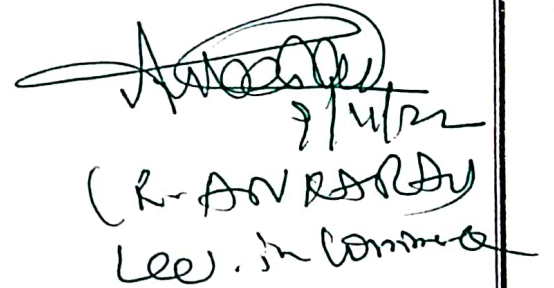 7/11/22
(R. ANRARAJ
Lec. in Commerce